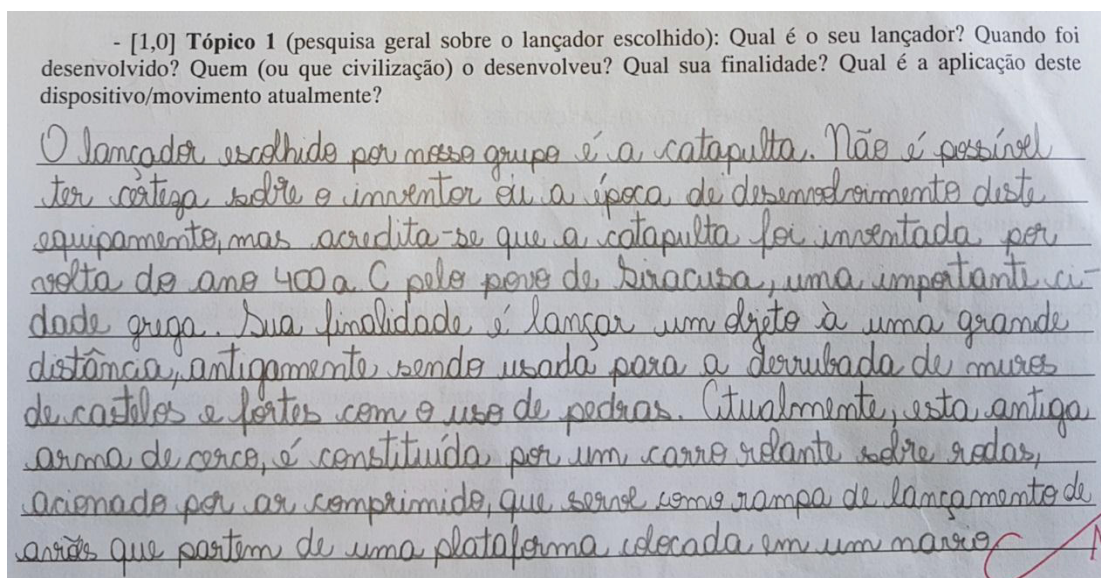 - [1,0] Tópico 1 (pesquisa geral sobre o lançador escolhido): Qual é o seu lançador? Quando foi
desenvolvido? Quem (ou que civilização) o desenvolveu? Qual sua finalidade? Qual é a aplicação deste
dispositivo/movimento atualmente?
O lançador escolhido por nosso grupo é a catapulta. Não é possível
ter certeza sobre o inventor ou a época de desenvolvimento deste
equipamento, mas acredita-se que a catapulta foi inventada por
volta do ano 400 a.C pelo povo de Siracusa, uma importante ci-
dade grega. Sua finalidade é lançar um objeto à uma grande
distância, antigamente sendo usada para a derrubada de muros
de castelos e fortes com o uso de pedras. Atualmente, esta antiga
arma de cerco, é constituída por um carro rolante sobre rodas,
acionado por ar comprimido, que serve como rampa de lançamento de
aviões que partem de uma plataforma colocada em um navio